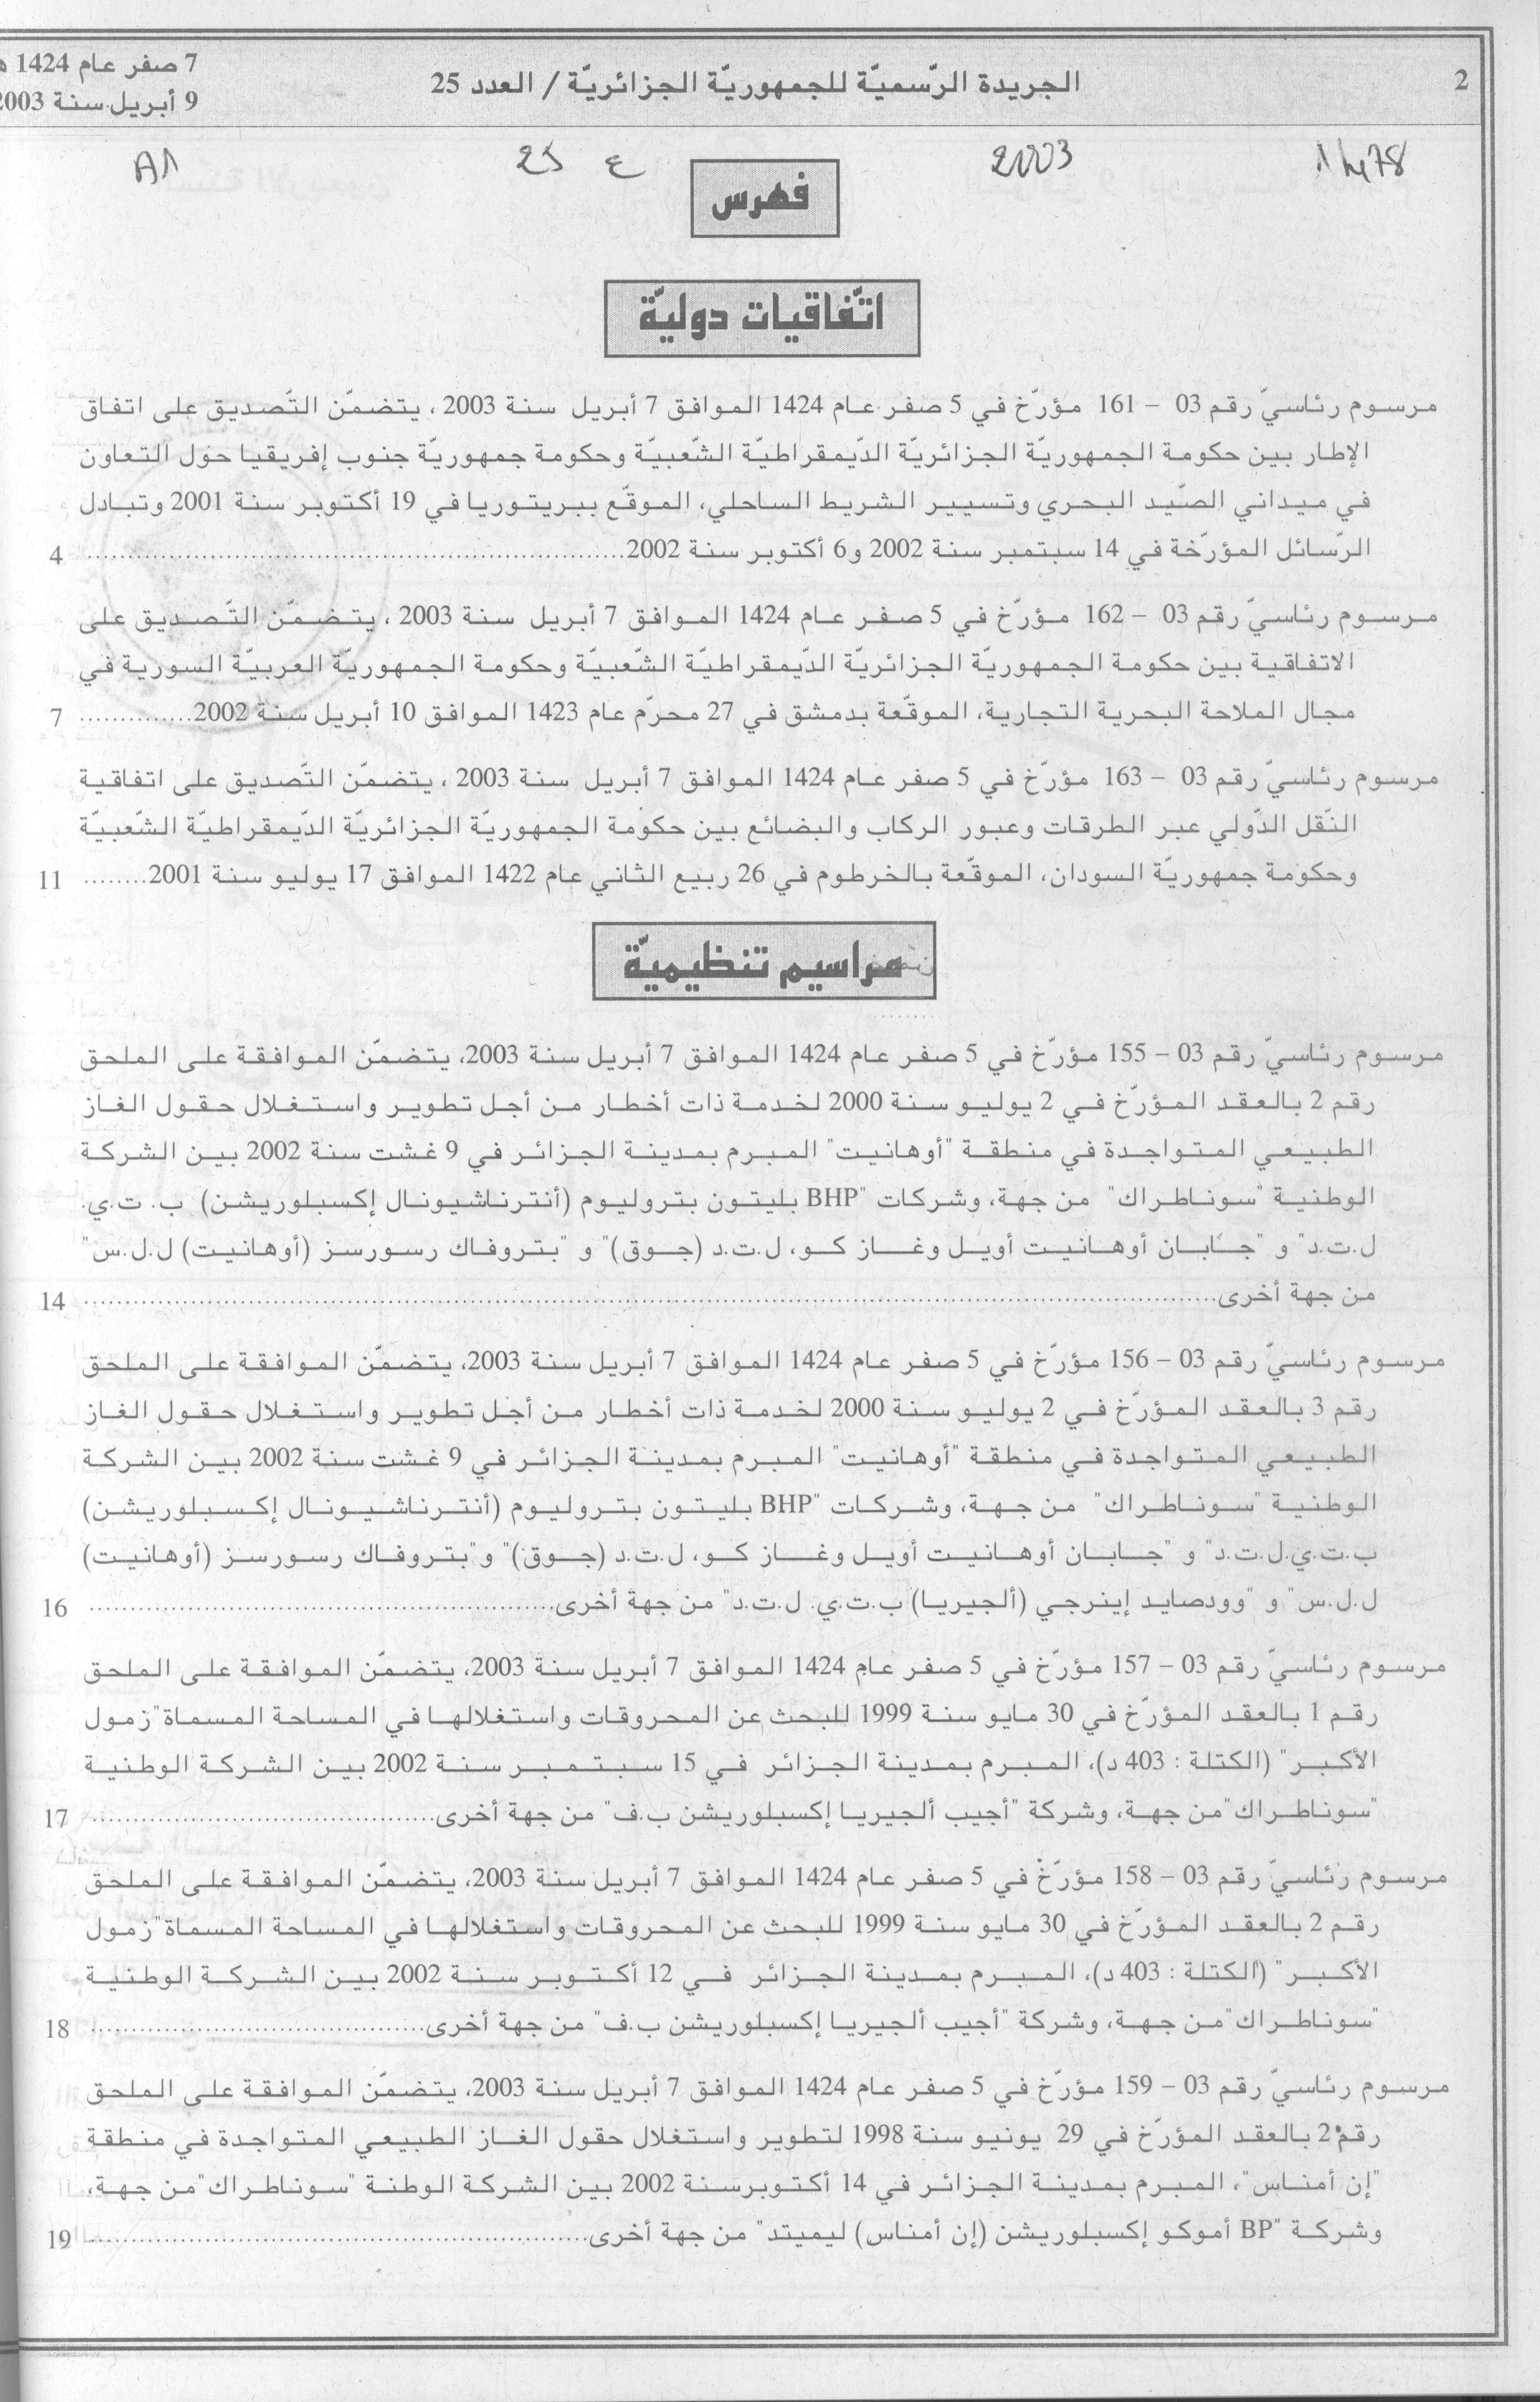 2
الجريدة الرّسميّة للجمهوريّة الجزائريّة / العدد 25
7 صفر عام 1424 هـ
9 أبريل سنة 2003
2003
25 ع
A1
فهرس
اتّفاقيات دوليّة
مرسوم رئاسيّ رقم 03 – 161 مؤرّخ في 5 صفر عام 1424 الموافق 7 أبريل سنة 2003 ، يتضمّن التّصديق على اتفاق
الإطار بين حكومة الجمهوريّة الجزائريّة الدّيمقراطيّة الشّعبيّة وحكومة جمهوريّة جنوب إفريقيا حول التعاون
في ميداني الصّيد البحري وتسيير الشريط الساحلي، الموقّع ببريتوريا في 19 أكتوبر سنة 2001 وتبادل
الرّسائل المؤرّخة في 14 سبتمبر سنة 2002 و6 أكتوبر سنة 2002........................ 4
مرسوم رئاسيّ رقم 03 – 162 مؤرّخ في 5 صفر عام 1424 الموافق 7 أبريل سنة 2003 ، يتضمّن التّصديق على
الاتفاقية بين حكومة الجمهوريّة الجزائريّة الدّيمقراطيّة الشّعبيّة وحكومة الجمهوريّة العربيّة السورية في
مجال الملاحة البحرية التجارية، الموقّعة بدمشق في 27 محرّم عام 1423 الموافق 10 أبريل سنة 2002.............. 7
مرسوم رئاسيّ رقم 03 – 163 مؤرّخ في 5 صفر عام 1424 الموافق 7 أبريل سنة 2003 ، يتضمّن التّصديق على اتفاقية
النّقل الدّولي عبر الطرقات وعبور الركاب والبضائع بين حكومة الجمهوريّة الجزائريّة الدّيمقراطيّة الشّعبيّة
وحكومة جمهوريّة السودان، الموقّعة بالخرطوم في 26 ربيع الثاني عام 1422 الموافق 17 يوليو سنة 2001........ 11
مراسيم تنظيميّة
مرسوم رئاسيّ رقم 03 – 155 مؤرّخ في 5 صفر عام 1424 الموافق 7 أبريل سنة 2003، يتضمّن الموافقة على الملحق
رقم 2 بالعقد المؤرّخ في 2 يوليو سنة 2000 لخدمة ذات أخطار من أجل تطوير واستغلال حقول الغاز
الطبيعي المتواجدة في منطقة "أوهانيت" المبرم بمدينة الجزائر في 9 غشت سنة 2002 بين الشركة
الوطنية "سوناطراك" من جهة، وشركات "BHP بليتون بتروليوم (أنترناشيونال إكسبلوريشن) ب. ت.ي.
ل.ت.د" و "جابان أوهانيت أويل وغاز كو، ل.ت.د (جوق)" و "بتروفاك رسورسز (أوهانيت) ل.ل.س"
من جهة أخرى........................ 14
مرسوم رئاسيّ رقم 03 – 156 مؤرّخ في 5 صفر عام 1424 الموافق 7 أبريل سنة 2003، يتضمّن الموافقة على الملحق
رقم 3 بالعقد المؤرّخ في 2 يوليو سنة 2000 لخدمة ذات أخطار من أجل تطوير واستغلال حقول الغاز
الطبيعي المتواجدة في منطقة "أوهانيت" المبرم بمدينة الجزائر في 9 غشت سنة 2002 بين الشركة
الوطنية "سوناطراك" من جهة، وشركات "BHP بليتون بتروليوم (أنترناشيونال إكسبلوريشن)
ب.ت.ي.ل.ت.د" و "جابان أوهانيت أويل وغاز كو، ل.ت.د (جوق)" و"بتروفاك رسورسز (أوهانيت)
ل.ل.س" و "وودصايد إينرجي (ألجيريا) ب.ت.ي. ل.ت.د" من جهة أخرى........................ 16
مرسوم رئاسيّ رقم 03 – 157 مؤرّخ في 5 صفر عام 1424 الموافق 7 أبريل سنة 2003، يتضمّن الموافقة على الملحق
رقم 1 بالعقد المؤرّخ في 30 مايو سنة 1999 للبحث عن المحروقات واستغلالها في المساحة المسماة"زمول
الأكبر" (الكتلة : 403 د)، المبرم بمدينة الجزائر في 15 سبتمبر سنة 2002 بين الشركة الوطنية
"سوناطراك"من جهة، وشركة "أجيب ألجيريا إكسبلوريشن ب.ف" من جهة أخرى........................ 17
مرسوم رئاسيّ رقم 03 – 158 مؤرّخ في 5 صفر عام 1424 الموافق 7 أبريل سنة 2003، يتضمّن الموافقة على الملحق
رقم 2 بالعقد المؤرّخ في 30 مايو سنة 1999 للبحث عن المحروقات واستغلالها في المساحة المسماة"زمول
الأكبر" (الكتلة : 403 د)، المبرم بمدينة الجزائر في 12 أكتوبر سنة 2002 بين الشركة الوطنية
"سوناطراك"من جهة، وشركة "أجيب ألجيريا إكسبلوريشن ب.ف" من جهة أخرى........................ 18
مرسوم رئاسيّ رقم 03 – 159 مؤرّخ في 5 صفر عام 1424 الموافق 7 أبريل سنة 2003، يتضمّن الموافقة على الملحق
رقم 2 بالعقد المؤرّخ في 29 يونيو سنة 1998 لتطوير واستغلال حقول الغاز الطبيعي المتواجدة في منطقة
"إن أمناس"، المبرم بمدينة الجزائر في 14 أكتوبرسنة 2002 بين الشركة الوطنة "سوناطراك"من جهة،
وشركة "BP أموكو إكسبلوريشن (إن أمناس) ليميتد" من جهة أخرى........................ 19